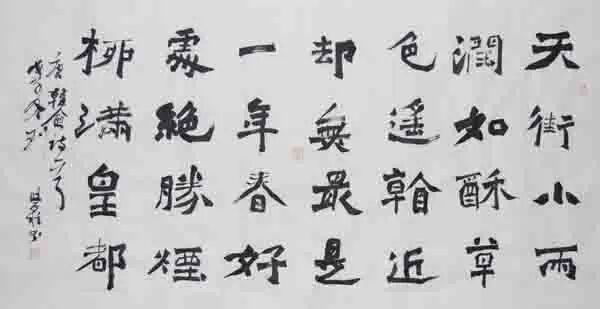 天街小雨
潤如酥草
色遙看近
却無最是
一年春好
處絕勝煙
柳滿皇都
唐韓愈詩一首
戊子